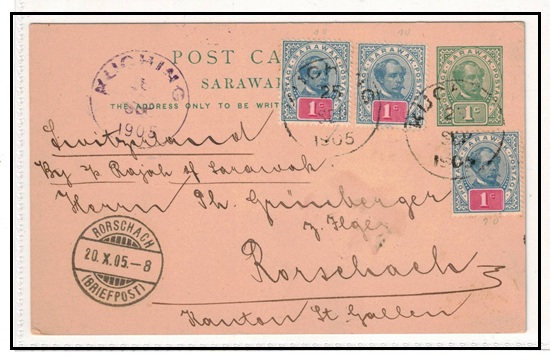 POST CA
SARAWA
THE ADDRESS ONLY TO BE WRIT
KUCHING
1905
SARAWAK
POSTAGE POSTAGE
1c
SARAWAK
POSTAGE POSTAGE
1c
SARAWAK
1c
25
1905
KUC
SEP
1905
SARAWAK
POSTAGE POSTAGE
1c
Switzerland
By s/s Rajah of Sarawak
Herrn Th. Grünberger
z. Ilge
Rorschach
Kanton St Gallen
RORSCHACH
20.X.05.-8
(BRIEFPOST)